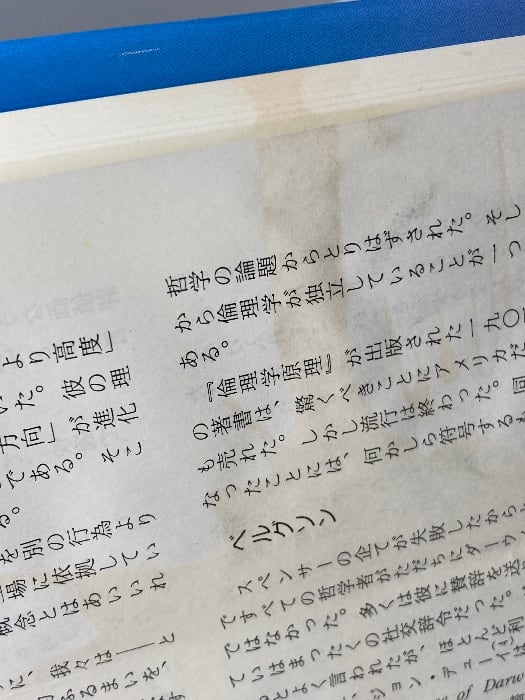 より高度」
いた。彼の理
方向」が進化
である。そこ
る。
を別の行為より
場に依拠してい
概念とはあいいれ
に、我々は――と
ふるまいを、
哲学の論題からとりはずされた。そし
から倫理学が独立していることが一つ
ある。
『倫理学原理』が出版された一九〇一
の著書は、驚くべきことにアメリカだ
も売れた。しかし流行は終わった。同
なったことには、何かしら符号するも
ベルグソン
スペンサーの企てが失敗したからと
ですべての哲学者がただちにダーウィ
ではなかった。多くは彼に賛辞を送
ていはまったくの社交辞令だった。
とよく言われたが、ほとんど利
ジョン・デューイは
of Darw